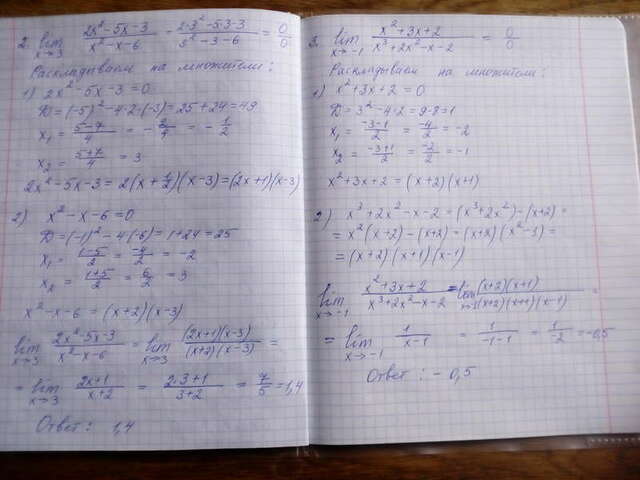 2. lim x→3 (2x² - 5x - 3)/(x² - x - 6) = (2·3² - 5·3 - 3)/(3² - 3 - 6) = 0/0
Раскладываем на множители:
1) 2x² - 5x - 3 = 0
D = (-5)² - 4·2·(-3) = 25 + 24 = 49
x₁ = (5-7)/4 = - 2/4 = - 1/2
x₂ = (5+7)/4 = 3
2x² - 5x - 3 = 2(x + 1/2)(x - 3) = (2x+1)(x-3)
2) x² - x - 6 = 0
D = (-1)² - 4·(-6) = 1 + 24 = 25
x₁ = (1-5)/2 = -4/2 = -2
x₂ = (1+5)/2 = 6/2 = 3
x² - x - 6 = (x+2)(x-3)
lim x→3 (2x² - 5x - 3)/(x² - x - 6) = lim x→3 ((2x+1)(x-3))/((x+2)(x-3)) =
= lim x→3 (2x+1)/(x+2) = (2·3+1)/(3+2) = 7/5 = 1,4
Ответ: 1,4
3. lim x→-1 (x² + 3x + 2)/(x³ + 2x² - x - 2) = 0/0
Раскладываем на множители:
1) x² + 3x + 2 = 0
D = 3² - 4·2 = 9 - 8 = 1
x₁ = (-3-1)/2 = -4/2 = -2
x₂ = (-3+1)/2 = -2/2 = -1
x² + 3x + 2 = (x+2)(x+1)
2) x³ + 2x² - x - 2 = (x³ + 2x²) - (x+2) =
= x²(x+2) - (x+2) = (x+2)(x² - 1) =
= (x+2)(x+1)(x-1)
lim x→-1 (x² + 3x + 2)/(x³ + 2x² - x - 2) = lim x→-1 ((x+2)(x+1))/((x+2)(x+1)(x-1)) =
= lim x→-1 1/(x-1) = 1/(-1-1) = 1/-2 = -0,5
Ответ: - 0,5